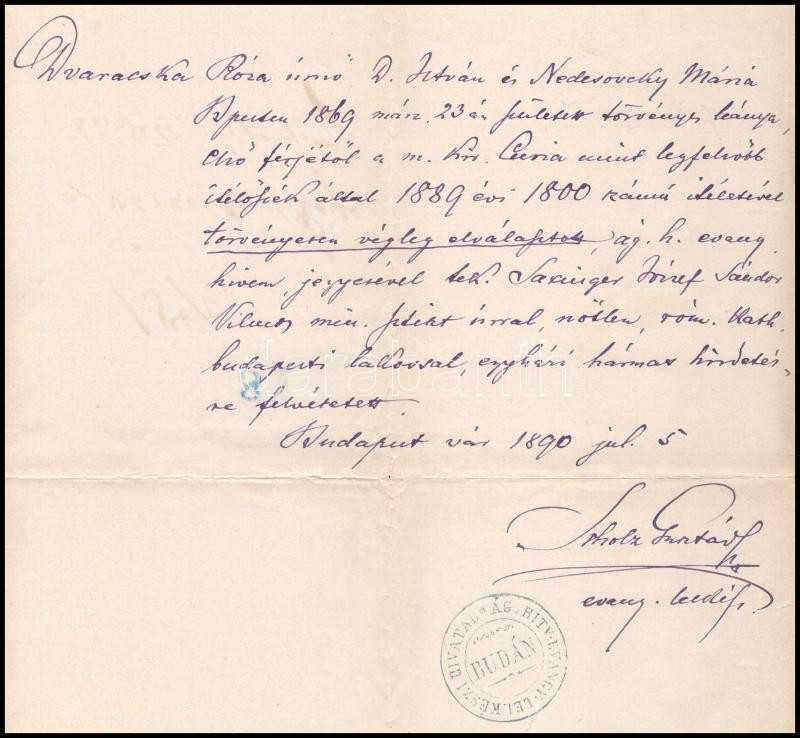 Dvaracska Róza úrnő D. István és Nedesovcky Mária
Bpesten 1869 márz. 23án született törvényes leánya,
első férjétől a m. kir. Curia mint legfelsőbb
itélőszék által 1889 évi 1800 számú itéletével
törvényesen végleg elválasztott, ág. h. evang.
hivem, jegyesével tek. Saxinger József Sándor
Vilmos min. úrral, nőtlen, róm. kath.
budapesti lakossal, egyházi hármas hirdetés-
re felvétetett.
Budapest vár 1890 jul. 5
Scholz Gusztáv
evang. lelkész.
ÁG. HITV. EVANGY. LELKÉSZI HIVATAL
BUDÁN
darabanth